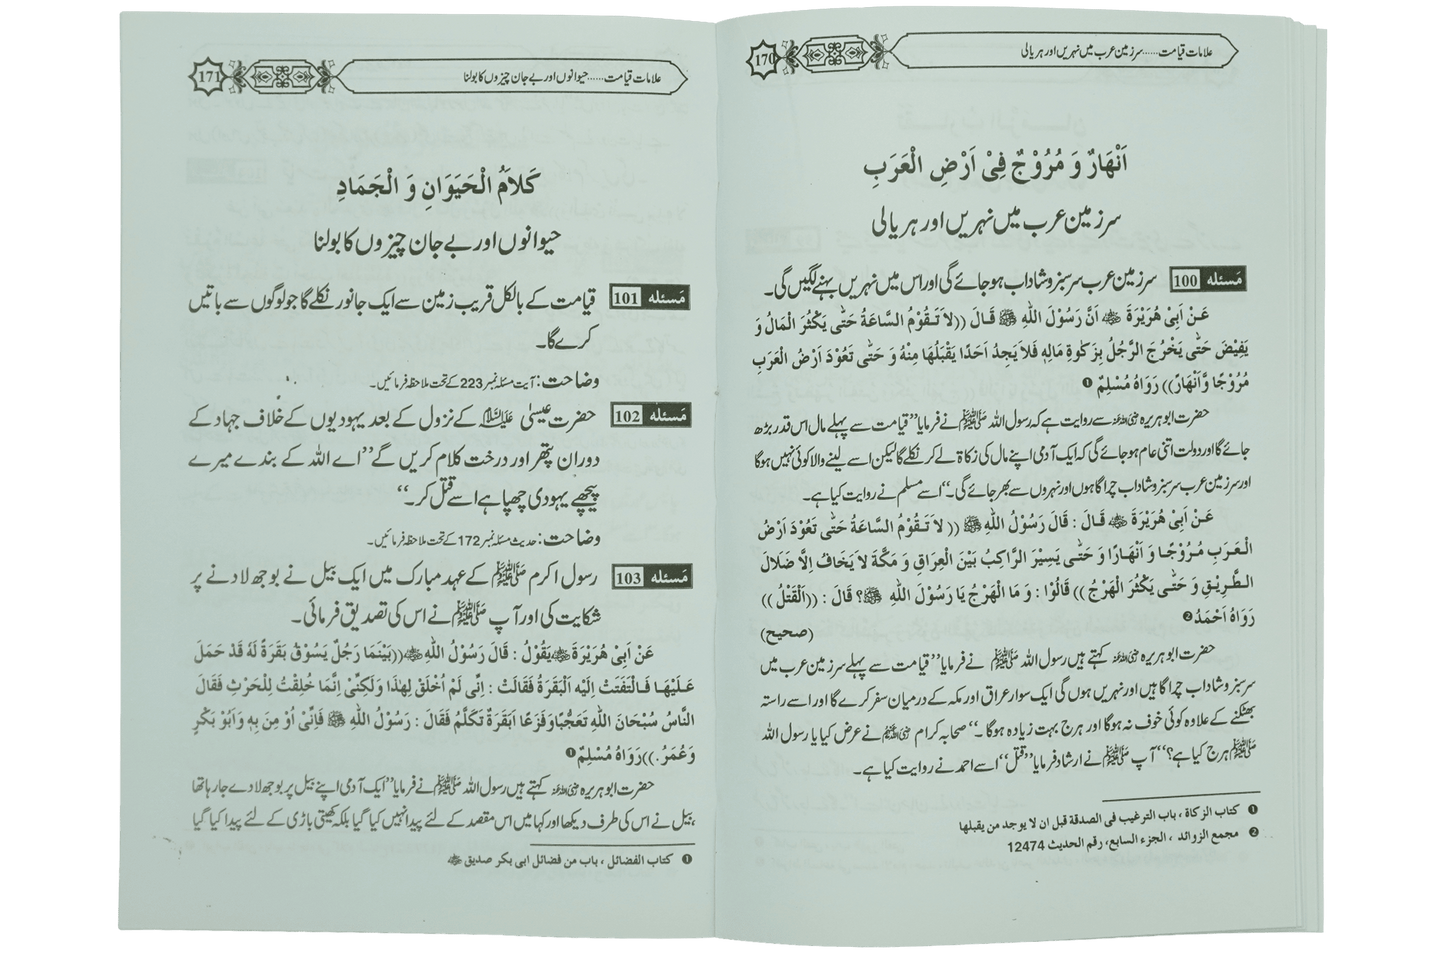 170
علامات قیامت......سرزمین عرب میں نہریں اور ہریالی
اَنْهَارٌ وَ مُرُوْجٌ فِيْ اَرْضِ الْعَرَبِ
سرزمین عرب میں نہریں اور ہریالی
مَسئله 100 سرزمین عرب سرسبز و شاداب ہو جائے گی اور اس میں نہریں بہنے لگیں گی۔
عَنْ اَبِيْ هُرَيْرَةَ ﷺ اَنَّ رَسُوْلَ اللّٰهِ ﷺ قَالَ ((لاَ تَقُوْمُ السَّاعَةُ حَتّٰى يَكْثُرَ الْمَالُ وَ
يَفِيْضَ حَتّٰى يَخْرُجَ الرَّجُلُ بِزَكٰوةِ مَالِهٖ فَلاَ يَجِدُ اَحَدًا يَقْبَلُهَا مِنْهُ وَ حَتّٰى تَعُوْدَ اَرْضُ الْعَرَبِ
مُرُوْجًا وَّاَنْهَارً)) رَوَاهُ مُسْلِمٌ ❶
حضرت ابو ہریرہ رضی اللہ عنہ سے روایت ہے کہ رسول اللہ ﷺ نے فرمایا ’’قیامت سے پہلے مال اس قدر بڑھ
جائے گا اور دولت اتنی عام ہو جائے گی کہ ایک آدمی اپنے مال کی زکاۃ لے کر نکلے گا لیکن اسے لینے والا کوئی نہیں ہوگا
اور سرزمین عرب سرسبز و شاداب چراگاہوں اور نہروں سے بھر جائے گی۔‘‘ اسے مسلم نے روایت کیا ہے۔
عَنْ اَبِيْ هُرَيْرَةَ ﷺ قَالَ : قَالَ رَسُوْلُ اللّٰهِ ﷺ (( لاَ تَقُوْمُ السَّاعَةُ حَتّٰى تَعُوْدَ اَرْضُ
الْعَرَبِ مُرُوْجًا وَ اَنْهَارًا وَ حَتّٰى يَسِيْرَ الرَّاكِبُ بَيْنَ الْعِرَاقِ وَ مَكَّةَ لاَ يَخَافُ اِلَّا ضَلاَلَ
الطَّرِيْقِ وَ حَتّٰى يَكْثُرَ الْهَرْجُ )) قَالُوْا : وَ مَا الْهَرْجُ يَا رَسُوْلَ اللّٰهِ ﷺ؟ قَالَ : ((اَلْقَتْلُ ))
رَوَاهُ اَحْمَدُ ❷ (صحيح)
حضرت ابو ہریرہ رضی اللہ عنہ کہتے ہیں رسول اللہ ﷺ نے فرمایا ’’قیامت سے پہلے سرزمین عرب میں
سرسبز و شاداب چراگاہیں اور نہریں ہوں گی ایک سوار عراق اور مکہ کے درمیان سفر کرے گا اور اسے راستہ
بھٹکنے کے علاوہ کوئی خوف نہ ہوگا اور ہرج بہت زیادہ ہوگا۔‘‘ صحابہ کرام رضی اللہ عنہم نے عرض کیا یا رسول اللہ
ﷺ ہرج کیا ہے؟‘‘ آپ ﷺ نے ارشاد فرمایا ’’قتل‘‘ اسے احمد نے روایت کیا ہے۔
❶ كتاب الزكاة ، باب الترغيب فى الصدقة قبل ان لا يوجد من يقبلها
❷ مجمع الزوائد ، الجزء السابع، رقم الحديث 12474
171
علامات قیامت......حیوانوں اور بے جان چیزوں کا بولنا
كَلاَمُ الْحَيَوَانِ وَ الْجَمَادِ
حیوانوں اور بے جان چیزوں کا بولنا
مَسئله 101 قیامت کے بالکل قریب زمین سے ایک جانور نکلے گا جو لوگوں سے باتیں
کرے گا۔
وضاحت : آیت مسئلہ نمبر 223 کے تحت ملاحظہ فرمائیں۔
مَسئله 102 حضرت عیسیٰ علیہ السلام کے نزول کے بعد یہودیوں کے خلاف جہاد کے
دوران پتھر اور درخت کلام کریں گے ’’اے اللہ کے بندے میرے
پیچھے یہودی چھپا ہے اسے قتل کر۔‘‘
وضاحت : حدیث مسئلہ نمبر 172 کے تحت ملاحظہ فرمائیں۔
مَسئله 103 رسول اکرم ﷺ کے عہد مبارک میں ایک بیل نے بوجھ لادنے پر
شکایت کی اور آپ ﷺ نے اس کی تصدیق فرمائی۔
عَنْ اَبِيْ هُرَيْرَةَ ﷺ يَقُوْلُ : قَالَ رَسُوْلُ اللّٰهِ ﷺ ((بَيْنَمَا رَجُلٌ يَسُوْقُ بَقَرَةً لَهُ قَدْ حَمَلَ
عَلَيْهَا فَالْتَفَتَتْ اِلَيْهِ الْبَقَرَةُ فَقَالَتْ : اِنِّى لَمْ اُخْلَقْ لِهٰذَا وَلٰكِنِّىْ اِنَّمَا خُلِقْتُ لِلْحَرْثِ فَقَالَ
النَّاسُ سُبْحَانَ اللّٰهِ تَعَجُّبًا وَفَزَعًا اَبَقَرَةٌ تَكَلَّمُ فَقَالَ : رَسُوْلُ اللّٰهِ ﷺ فَاِنِّىْ اُوْ مِنَ بِهٖ وَ اَبُوْ بَكْرٍ
وَ عُمَرُ.)) رَوَاهُ مُسْلِمٌ ❶
حضرت ابو ہریرہ رضی اللہ عنہ کہتے ہیں رسول اللہ ﷺ نے فرمایا ’’ایک آدمی اپنے بیل پر بوجھ لادے جا رہا تھا
،بیل نے اس کی طرف دیکھا اور کہا میں اس مقصد کے لئے پیدا نہیں کیا گیا بلکہ کھیتی باڑی کے لئے پیدا کیا گیا
❶ كتاب الفضائل ، باب من فضائل ابى بكر صديق